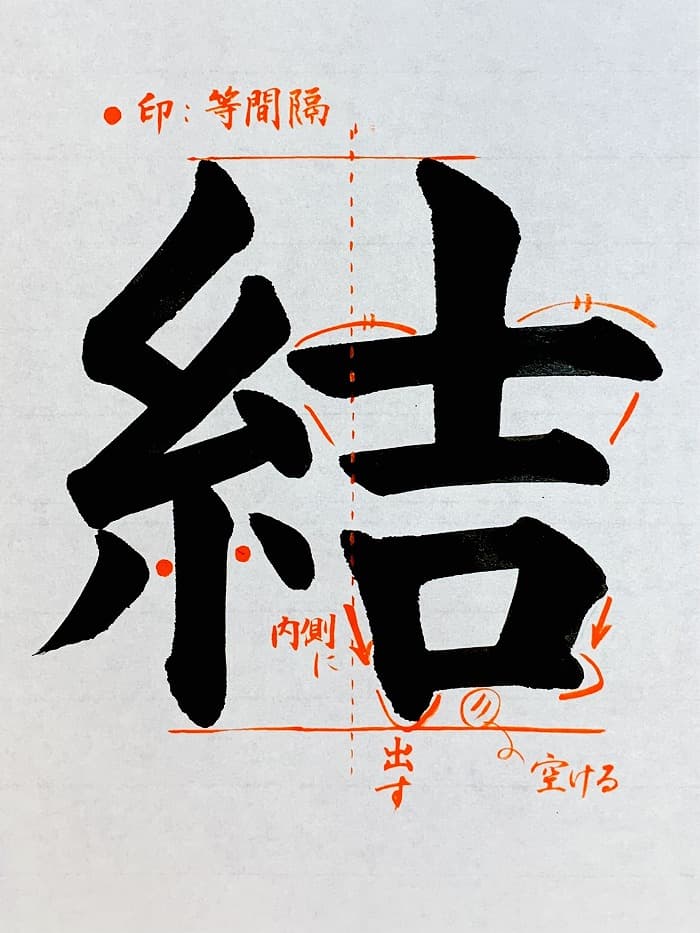 ●印：等間隔
結
内側に
出す
空ける